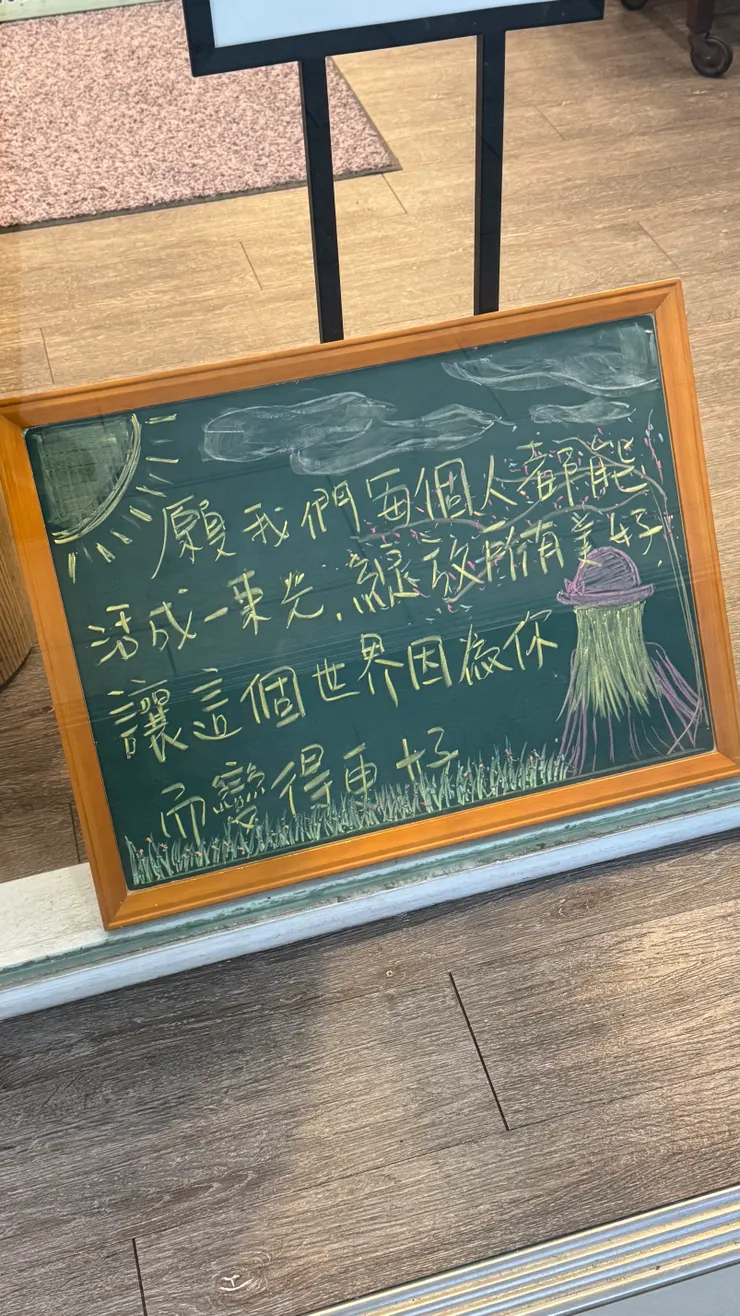 願我們每個人都能
活成一束光.綻放所有美好.
讓這個世界因為你
而變得更好